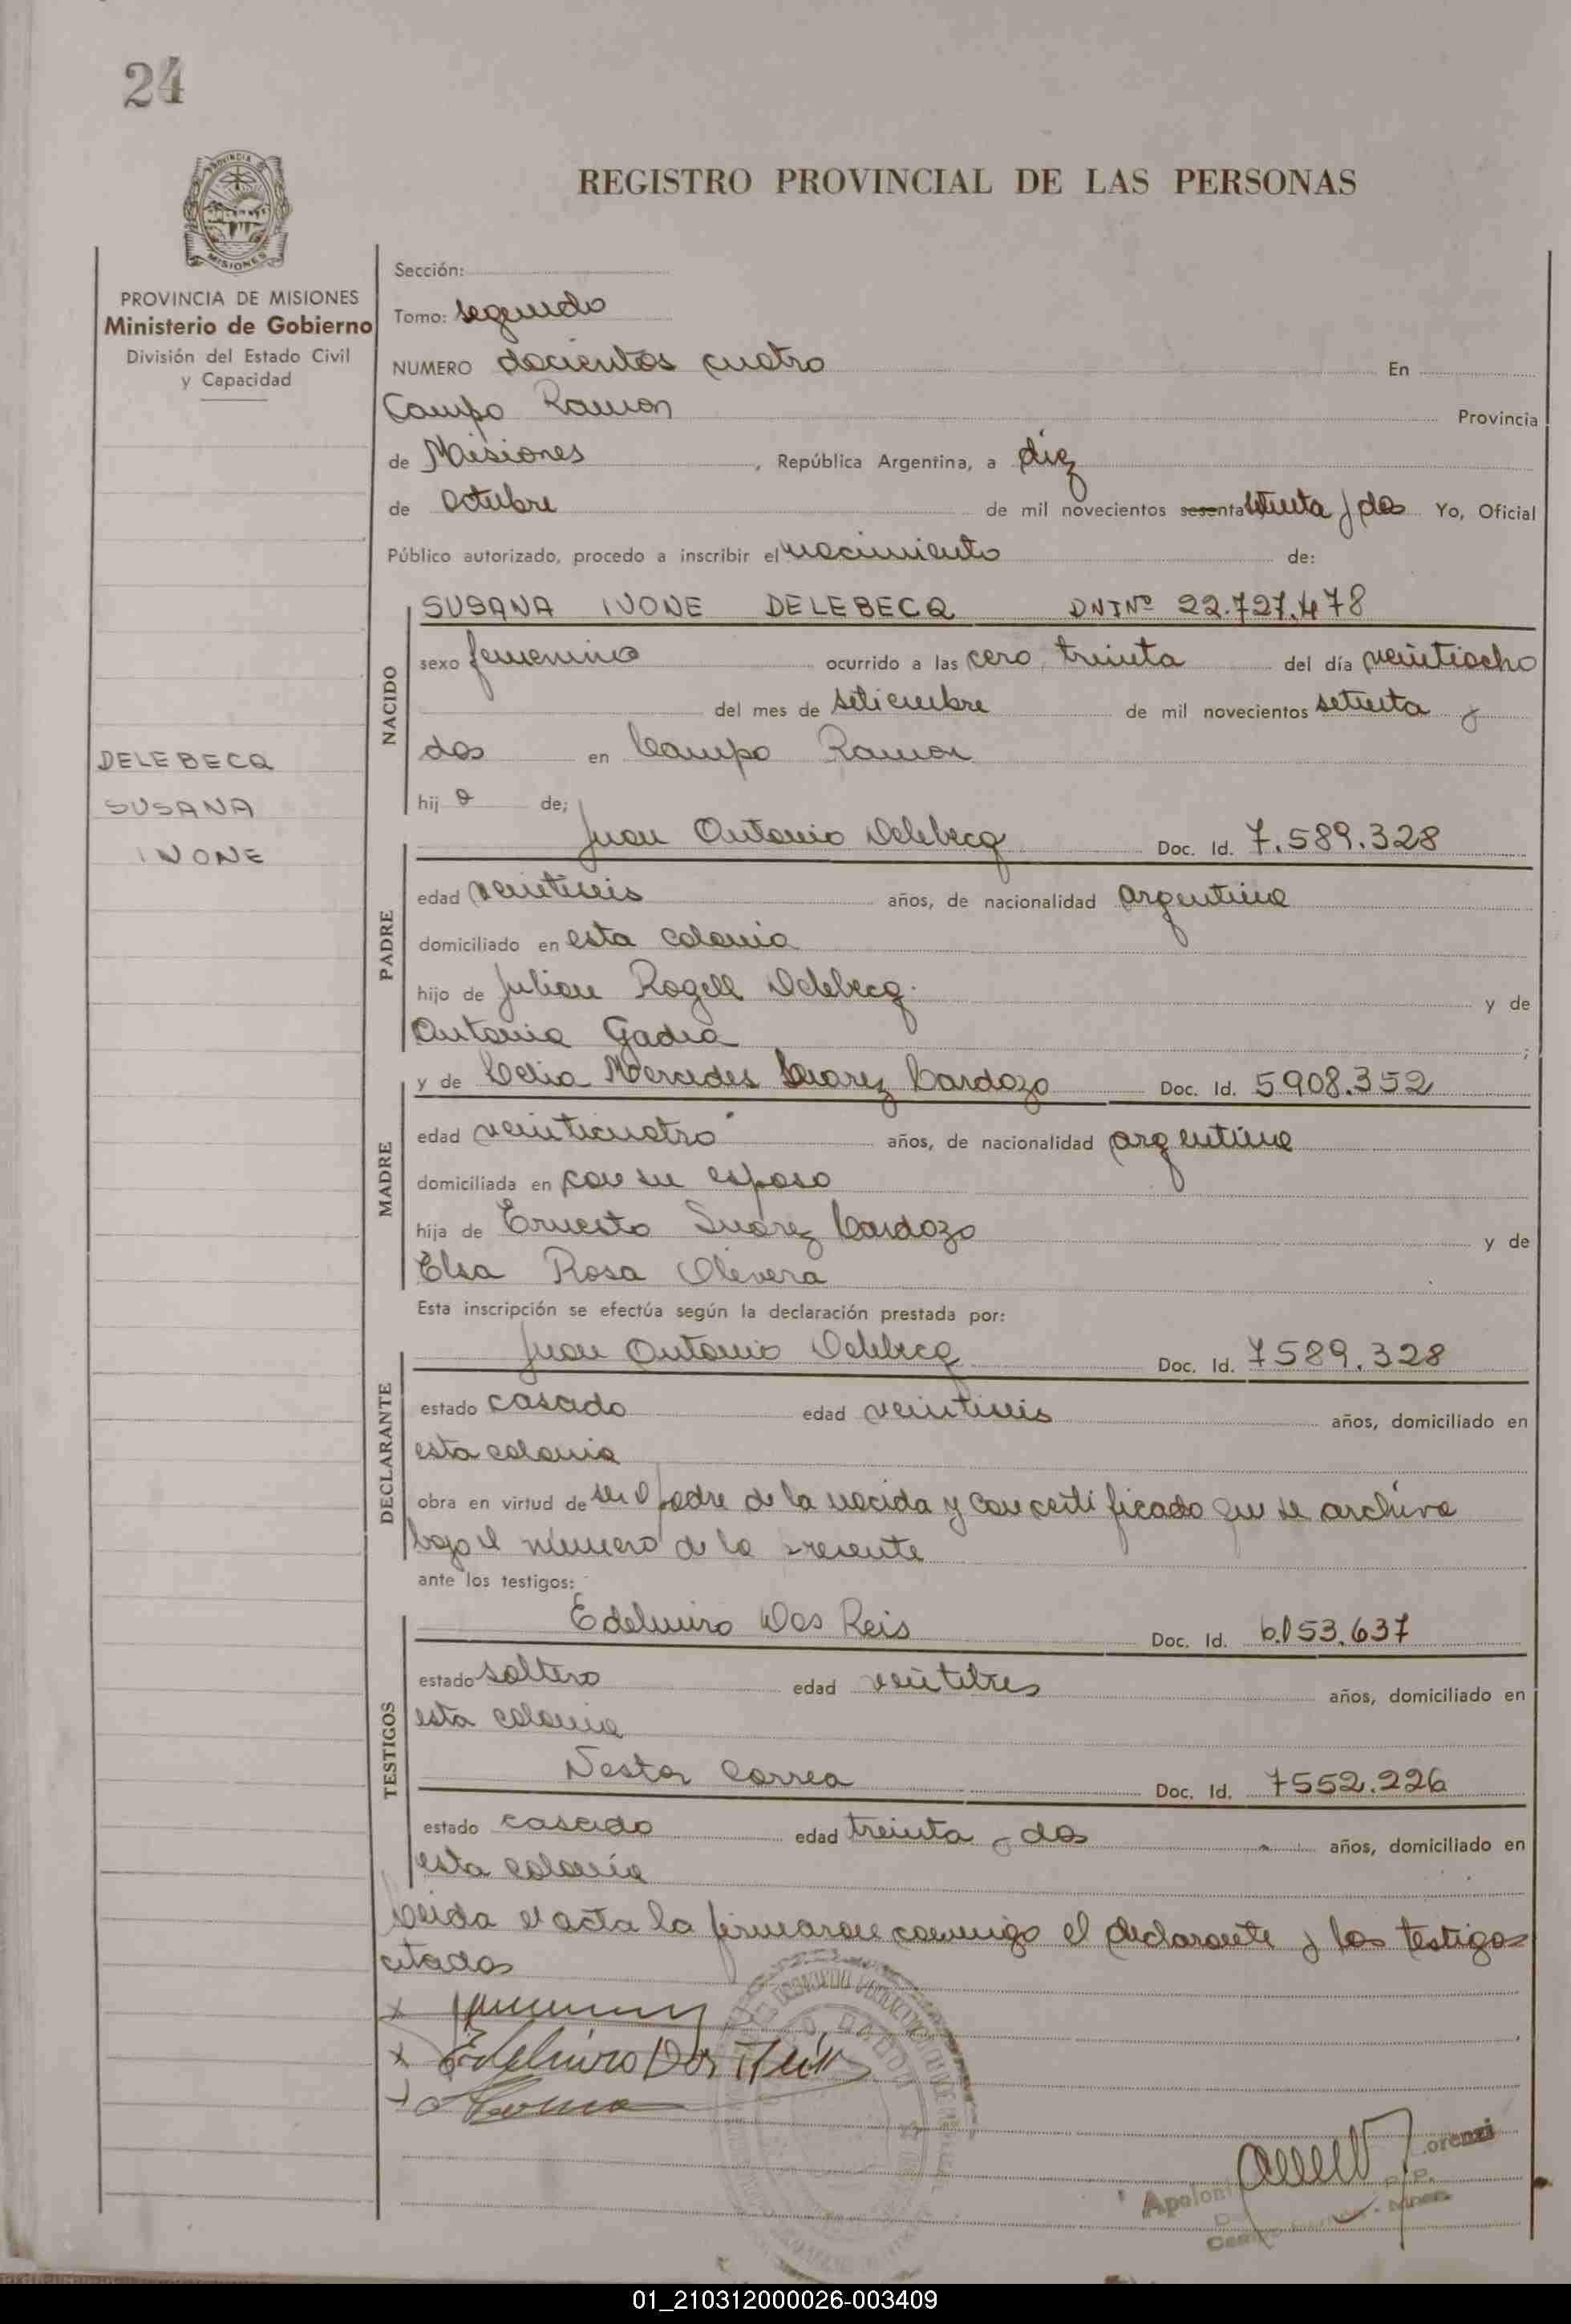 24
REGISTRO PROVINCIAL DE LAS PERSONAS
PROVINCIA DE MISIONES
Ministerio de Gobierno
División del Estado Civil
y Capacidad
DELEBECQ
SUSANA
IVONE
Sección:
Tomo: segundo
NUMERO docientos cuatro En
Campo Ramon Provincia
de Misiones, República Argentina, a diez
de octubre de mil novecientos sesenta setenta y dos Yo, Oficial
Público autorizado, procedo a inscribir el nacimiento de:
NACIDO
SUSANA IVONE DELEBECQ DNI Nº 22.727.478
sexo femenino ocurrido a las cero treinta del día veintiocho
del mes de setiembre de mil novecientos setenta y
dos en Campo Ramon
hij a de;
PADRE
Juan Antonio Delebecq Doc. Id. 7.589.328
edad veintiseis años, de nacionalidad argentina
domiciliado en esta colonia
hijo de Julian Delebecq y de
Antonia
MADRE
y de Celia Mercedes Suarez Cardozo Doc. Id. 5908.352
edad veinticuatro años, de nacionalidad argentina
domiciliada en con su esposo
hija de Ernesto Suárez Cardozo y de
Elsa Rosa Olivera
Esta inscripción se efectúa según la declaración prestada por:
DECLARANTE
Juan Antonio Delebecq Doc. Id. 7589.328
estado casado edad veintiseis años, domiciliado en
esta colonia
obra en virtud de ser padre de la nacida y con certificado que se archiva
bajo el número de la presente
ante los testigos:
TESTIGOS
Edelmiro Dos Reis Doc. Id. 6.153.637
estado soltero edad veintitres años, domiciliado en
esta colonia
Nestor Correa Doc. Id. 7552.226
estado casado edad treinta y dos años, domiciliado en
esta colonia
Leida el acta la firmaron conmigo el declarante y los testigos
citados
Edelmiro Dos Reis
01_210312000026-003409